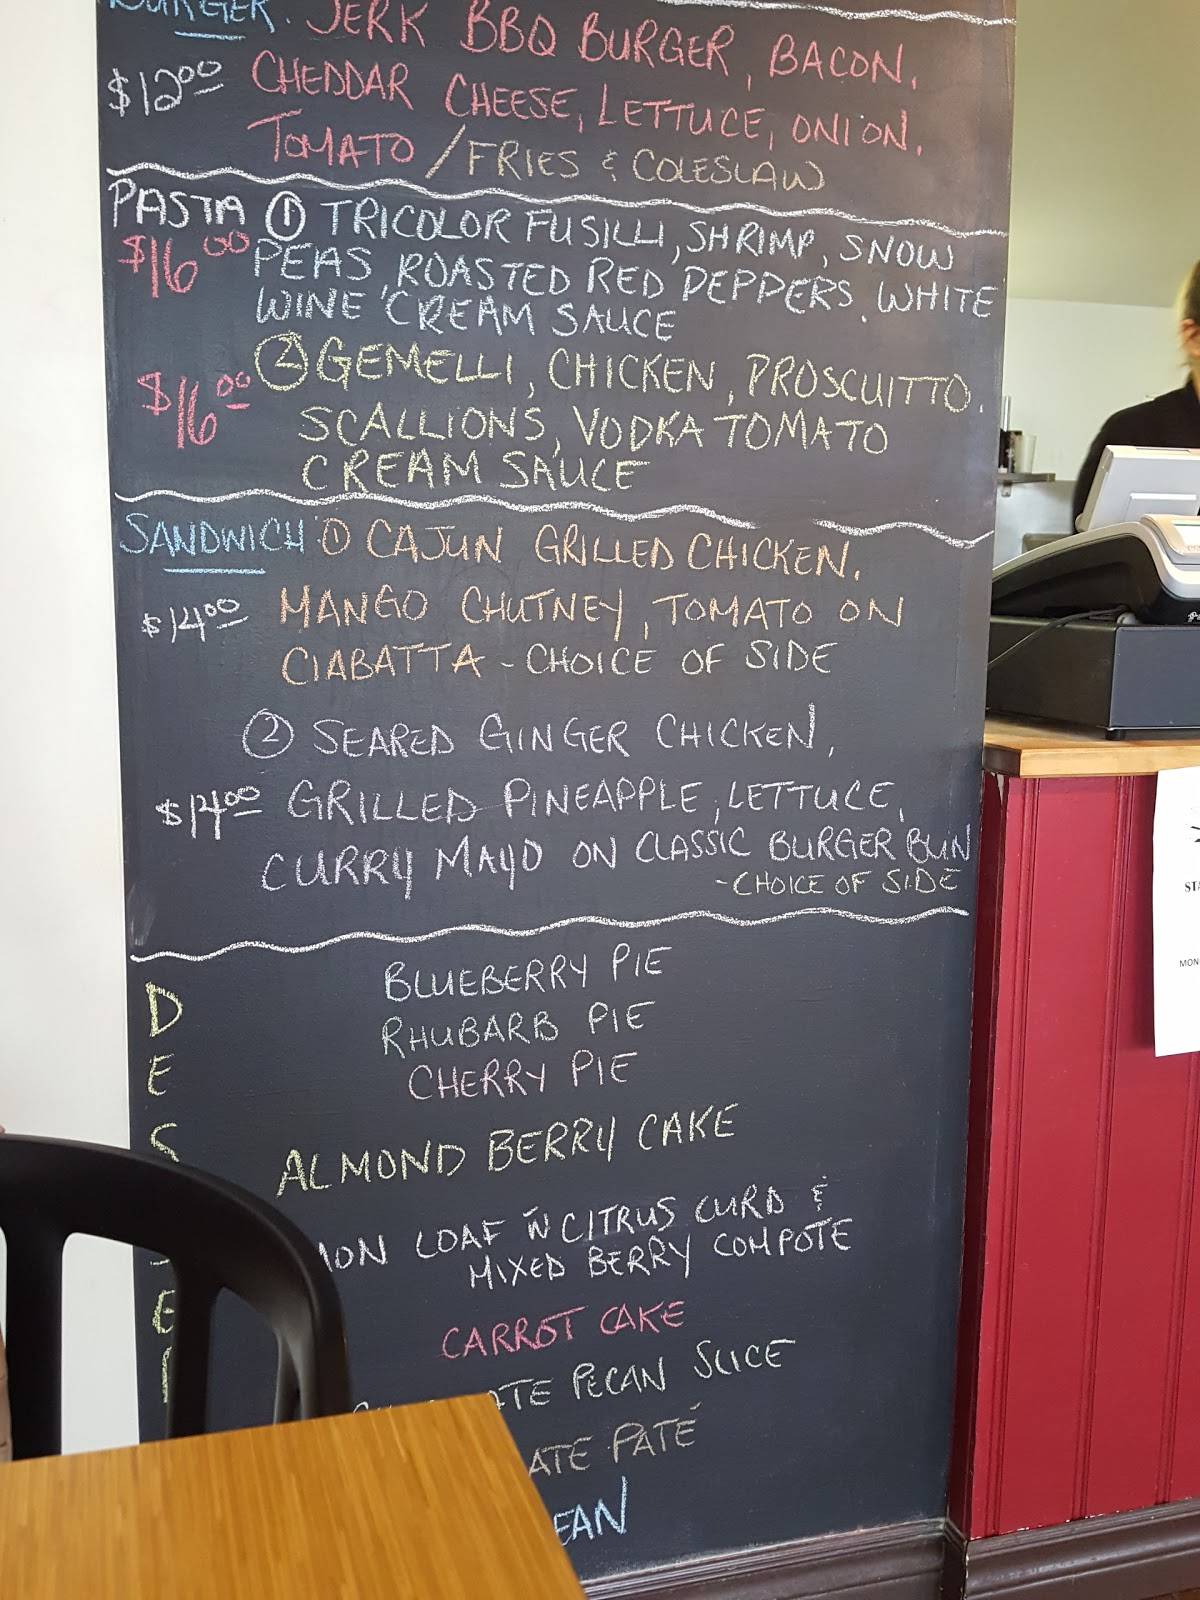 BURGER. JERK BBQ BURGER, BACON,
$12.00 CHEDDAR CHEESE, LETTUCE, ONION,
TOMATO / FRIES & COLESLAW
PASTA ① TRICOLOR FUSILLI, SHRIMP, SNOW
$16.00 PEAS, ROASTED RED PEPPERS, WHITE
WINE CREAM SAUCE
② GEMELLI, CHICKEN, PROSCUITTO,
$16.00 SCALLIONS, VODKA TOMATO
CREAM SAUCE
SANDWICH ① CAJUN GRILLED CHICKEN,
$14.00 MANGO CHUTNEY, TOMATO ON
CIABATTA - CHOICE OF SIDE
② SEARED GINGER CHICKEN,
$14.00 GRILLED PINEAPPLE, LETTUCE,
CURRY MAYO ON CLASSIC BURGER BUN
- CHOICE OF SIDE
BLUEBERRY PIE
D
RHUBARB PIE
E
CHERRY PIE
S
ALMOND BERRY CAKE
LOAF W CITRUS CURD &
MIXED BERRY COMPOTE
E
CARROT CAKE
PECAN SLICE
PATÉ
MON